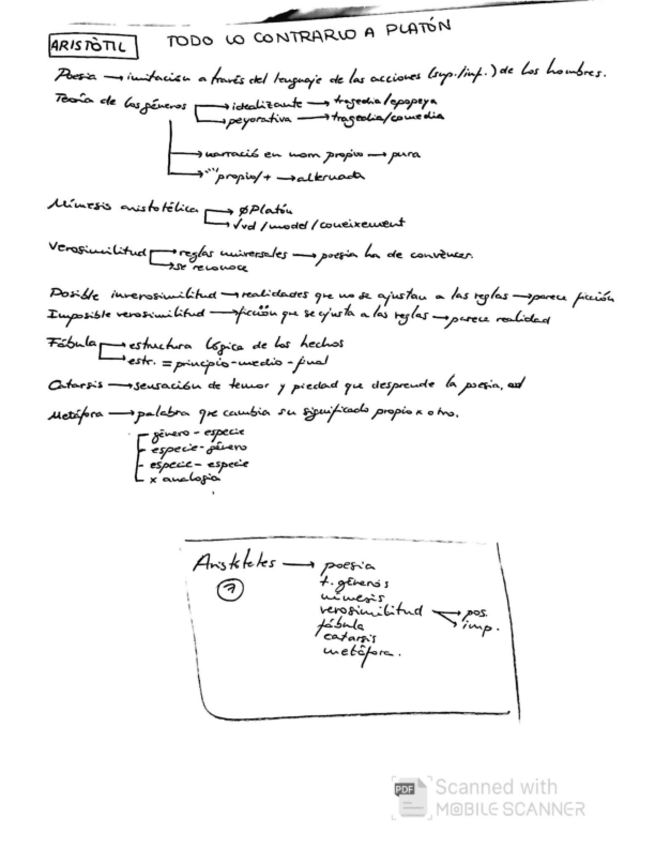 ARISTÒTIL TODO LO CONTRARIO A PLATÓN
Poesia → imitación a través del lenguaje de las acciones (sup./inf.) de los hombres.
Teoría de los géneros → idealizante → tragedia/epopeya
→ peyorativa → tragedia/comedia
→ narració en nom propio → pura
→ """ propio/+ → alternada
Mímesis aristotélica → ∅Platón
→ √vd/model/coneixement
Verosimilitud → reglas universales → poesia ha de convèncer.
→ se reconoce
Posible inverosimilitud → realidades que no se ajustan a las reglas → parece ficción
Imposible verosimilitud → ficción que se ajusta a las reglas → parece realidad
Fábula → estructura lógica de los hechos
→ estr. = principio-medio-final
Catarsis → sensación de temor y piedad que desprende la poesia,
Metáfora → palabra que cambia su significado propio x otro.
género - especie
especie - género
especie - especie
x analogía
Aristóteles → poesia
7 t. géneros
mímesis
verosimilitud → pos.
→ imp.
fábula
catarsis
metáfora.
PDF Scanned with
MOBILE SCANNER